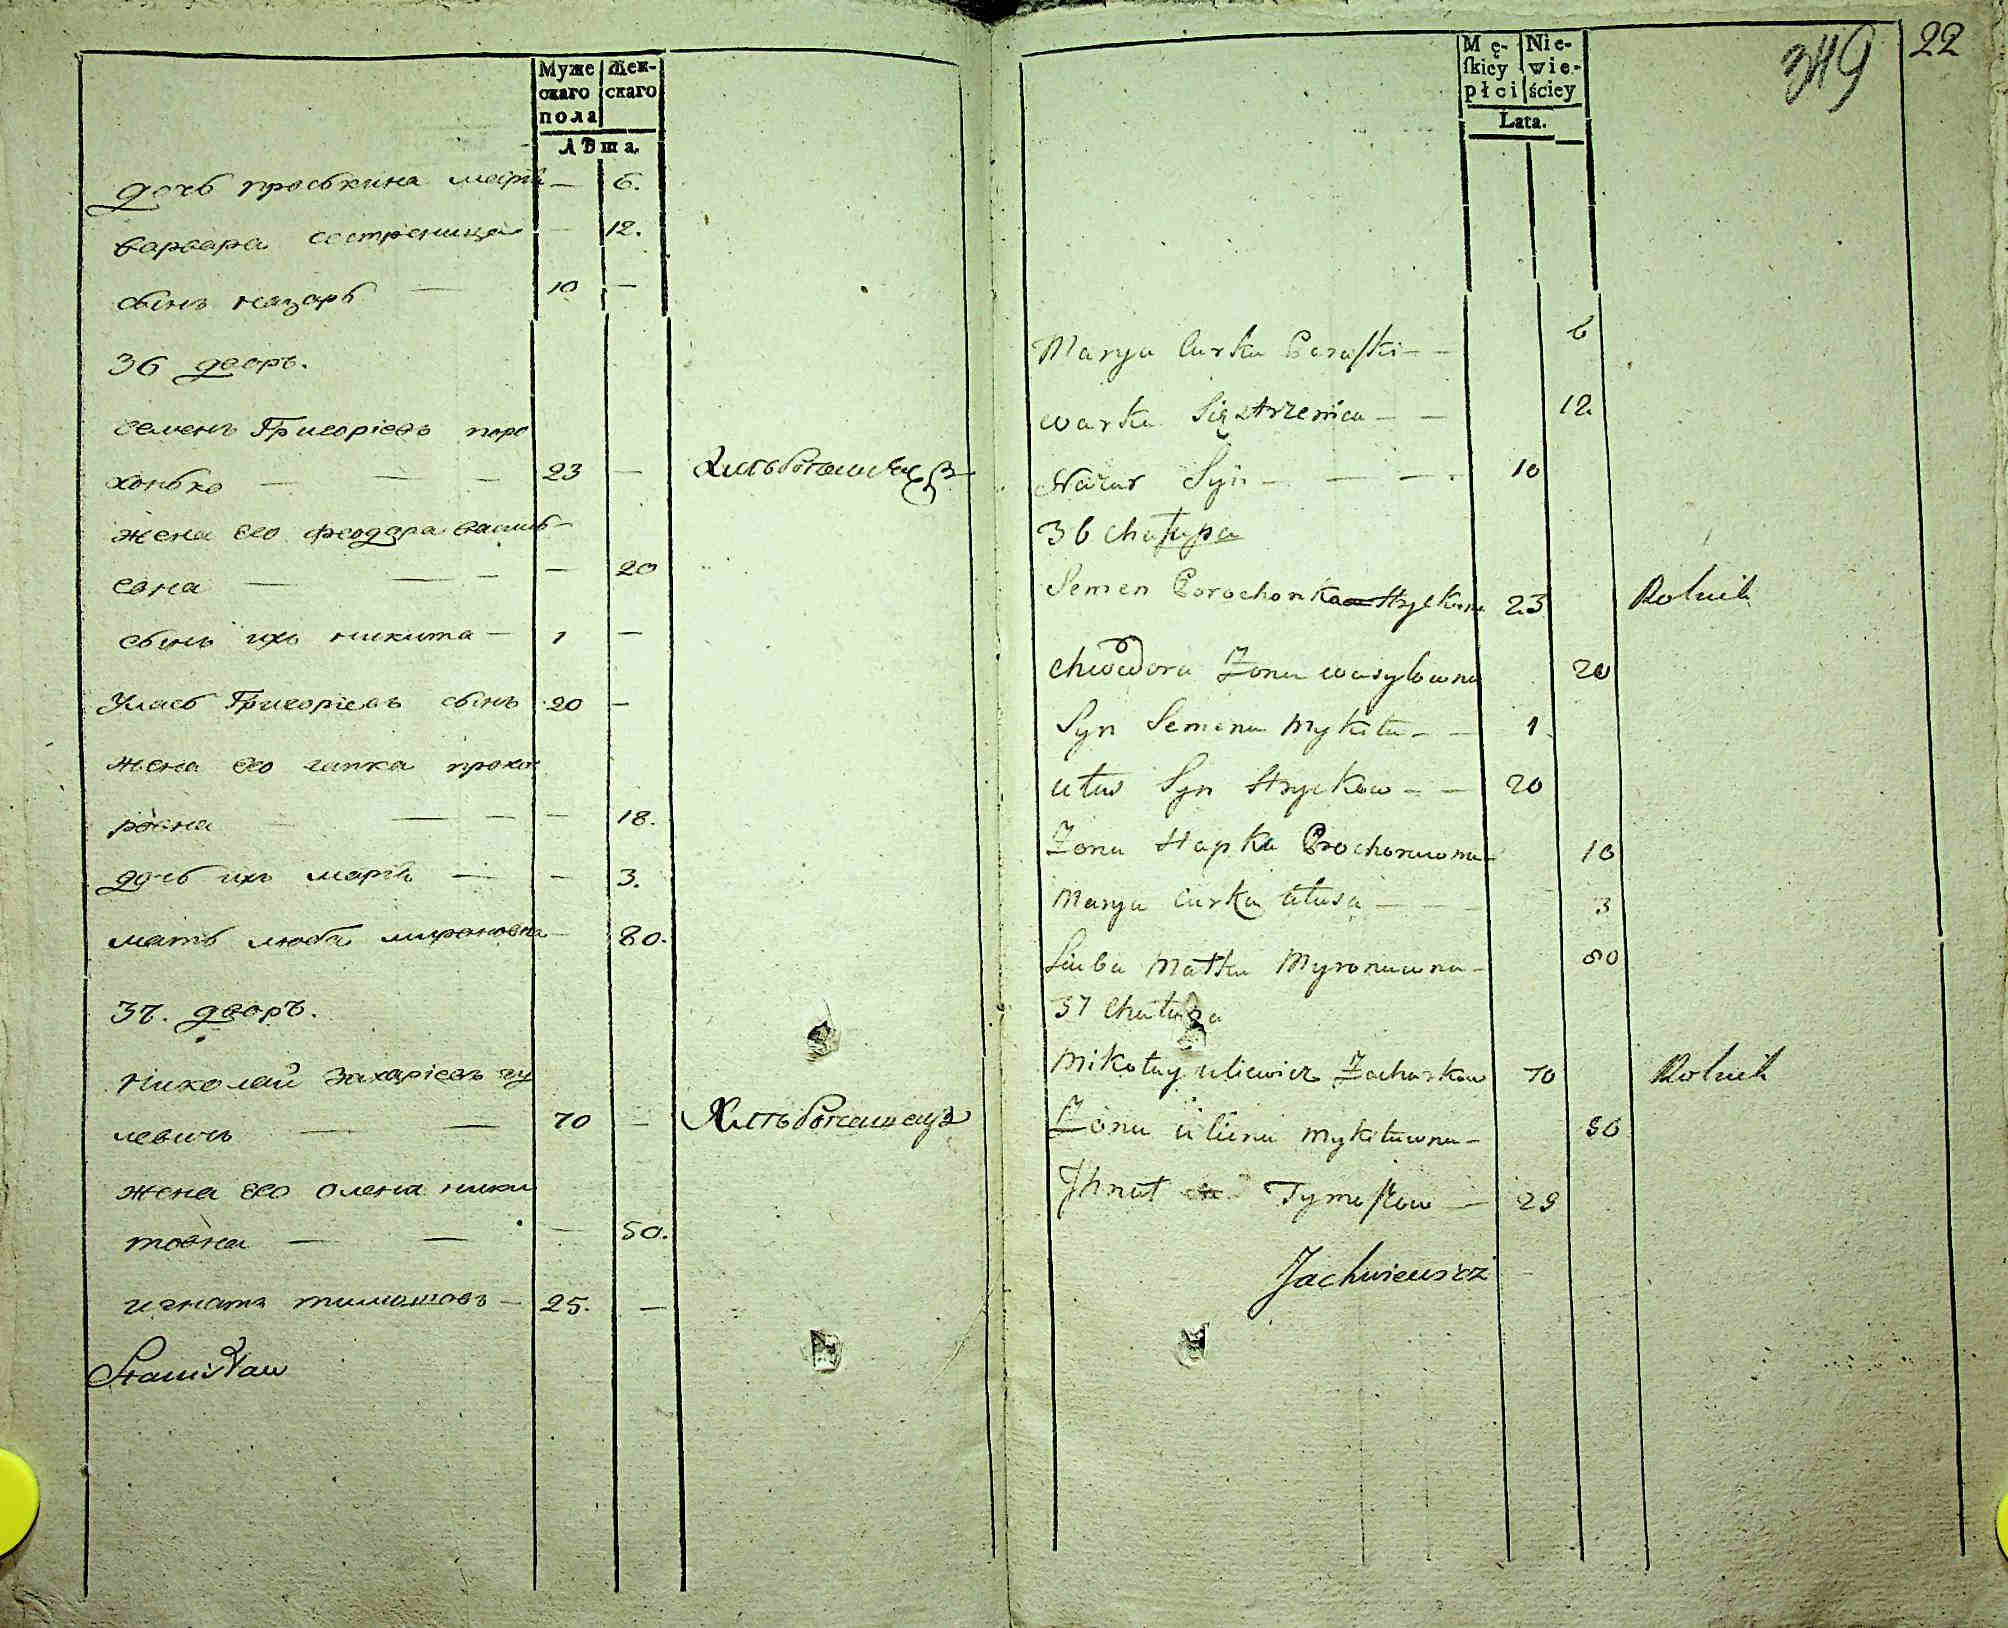 Муже скаго пола
Жен- скаго
Лѣта.
дочь проськина марія — 6.
варвара сестреница — 12.
сынъ назарь — 10 —
36 дворъ.
семенъ Григоріевъ поро
хонько — — — 23 —
жена его феодора василь-
евна — — — — 20
сынъ ихъ никита — 1 —
Уласъ Григоріевъ сынъ 20 —
жена его гапка прохо
ровна — — — — 18.
дочь ихъ марія — — 3.
мать люба мироновна — 80.
37. дворъ.
Николай Захаріевъ гу
левичъ — — 70 —
жена его олена ники
товна — — — 50.
игнатъ тимошовъ — 25. —
Stanisław
349
22
Mę- skiey płci
Nie- wie- ściey
Lata.
Marya Curka Paraski — — 6
Warka Siestrzenica — — 12
Nazar Syn — — — 10
36 Chałupa
Semen Porochonka Hryckow 23 Rolnik
Chwedora Zona Wasylowna 20
Syn Semena Mykita — — 1
Ułas Syn Hryckow — — 20
Zona Hapka Prochorowna 18
Marya Curka Ułasa — — — 3
Luba Matka Myronowna — 80
37 Chałupa
Mikołay Uliewicz Zacharkow 70 Rolnik
Zona Uliena Mykitowna — 50
Ihnat Tymoszow — 25
Jachniewicz